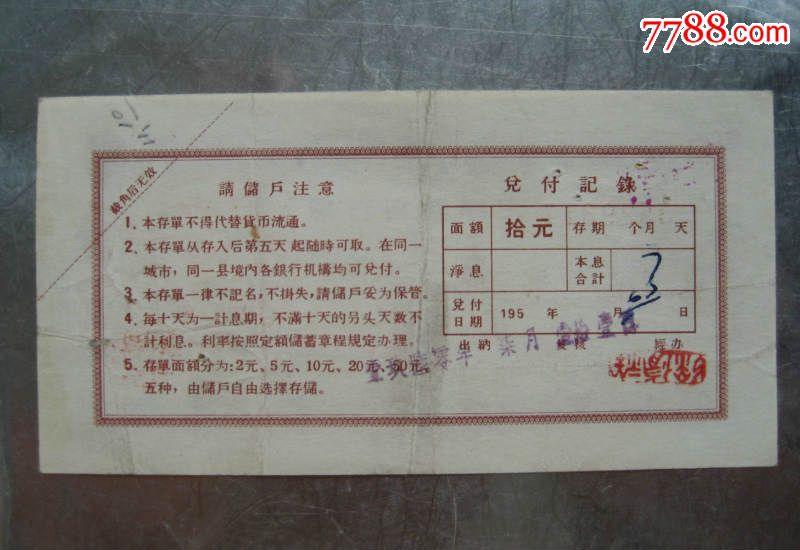 7788.com
截角后无效
請儲戶注意
1、本存單不得代替貨币流通。
2、本存單从存入后第五天起随時可取。在同一
城市，同一县境内各銀行机構均可兌付。
3、本存單一律不記名，不掛失，請儲戶妥为保管。
4、每十天为一計息期，不滿十天的另头天数不
計利息。利率按照定額儲蓄章程規定办理。
5、存單面額分为：2元、5元、10元、20元、50元、
五种，由儲戶自由选擇存儲。
兌付記錄
面額 拾元 存期 个月 天
淨息 本息合計
兌付日期 195 年 月 日
出納 复核 經办